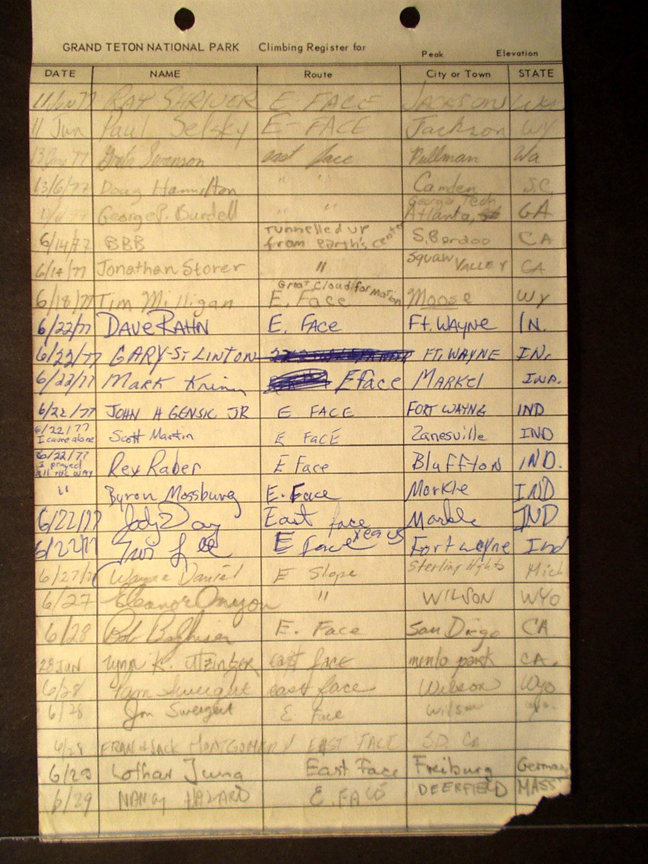 GRAND TETON NATIONAL PARK Climbing Register for Peak Elevation
DATE NAME Route City or Town STATE
RAY SHRIVER E FACE JACKSON WY
11 Jun Paul Selsky E-FACE Jackson WY
Swenson east face Pullman Wa
13/6/77 Doug Hamilton " " Camden S.C
George P. Burdell " " Georgia Tech Atlanta, GA
6/14/77 BBB Tunnelled up from Earth's center S. Berdoo CA
6/14/77 Jonathan Storer " Squaw VALLEY CA
6/18/77 Tim Milligan Great Cloud formation E. Face Moose WY
6/22/77 DAVE RAHN E. FACE Ft. WAYNE IN.
6/22/77 GARY-St LINTON FT. WAYNE IN.
6/22/77 Mark E face MARKEl IND.
6/22/77 JOHN H GENSIC JR E FACE FORT WAYNE IND
6/22/77 I came alone Scott Martin E FACE Zanesville IND
6/22/77 I prayed all the way Rex Raber E Face Bluffton IND.
" Byron Mossburg E. Face Markle IND
6/22/77 Jody Day East face Markle IND
6/22/77 E face Fort wayne Ind
6/27/77 Wayne Daniel E Slope Sterling Hights Mich
6/27 Eleanor " WILSON WYO
6/28 Bob E. Face San Diego CA
28 JUN Lynn K. east face menlo park CA.
6/28 Pam east face Wilson Wyo
6/28 Jon E face Wilson
6/28 FRAN & JACK MONTGOMERY EAST FACE S.D. CA
6/29 Lothar Jung East Face Freiburg Germany
6/29 NANCY HAZARD E. FACE DEERFIELD MASS